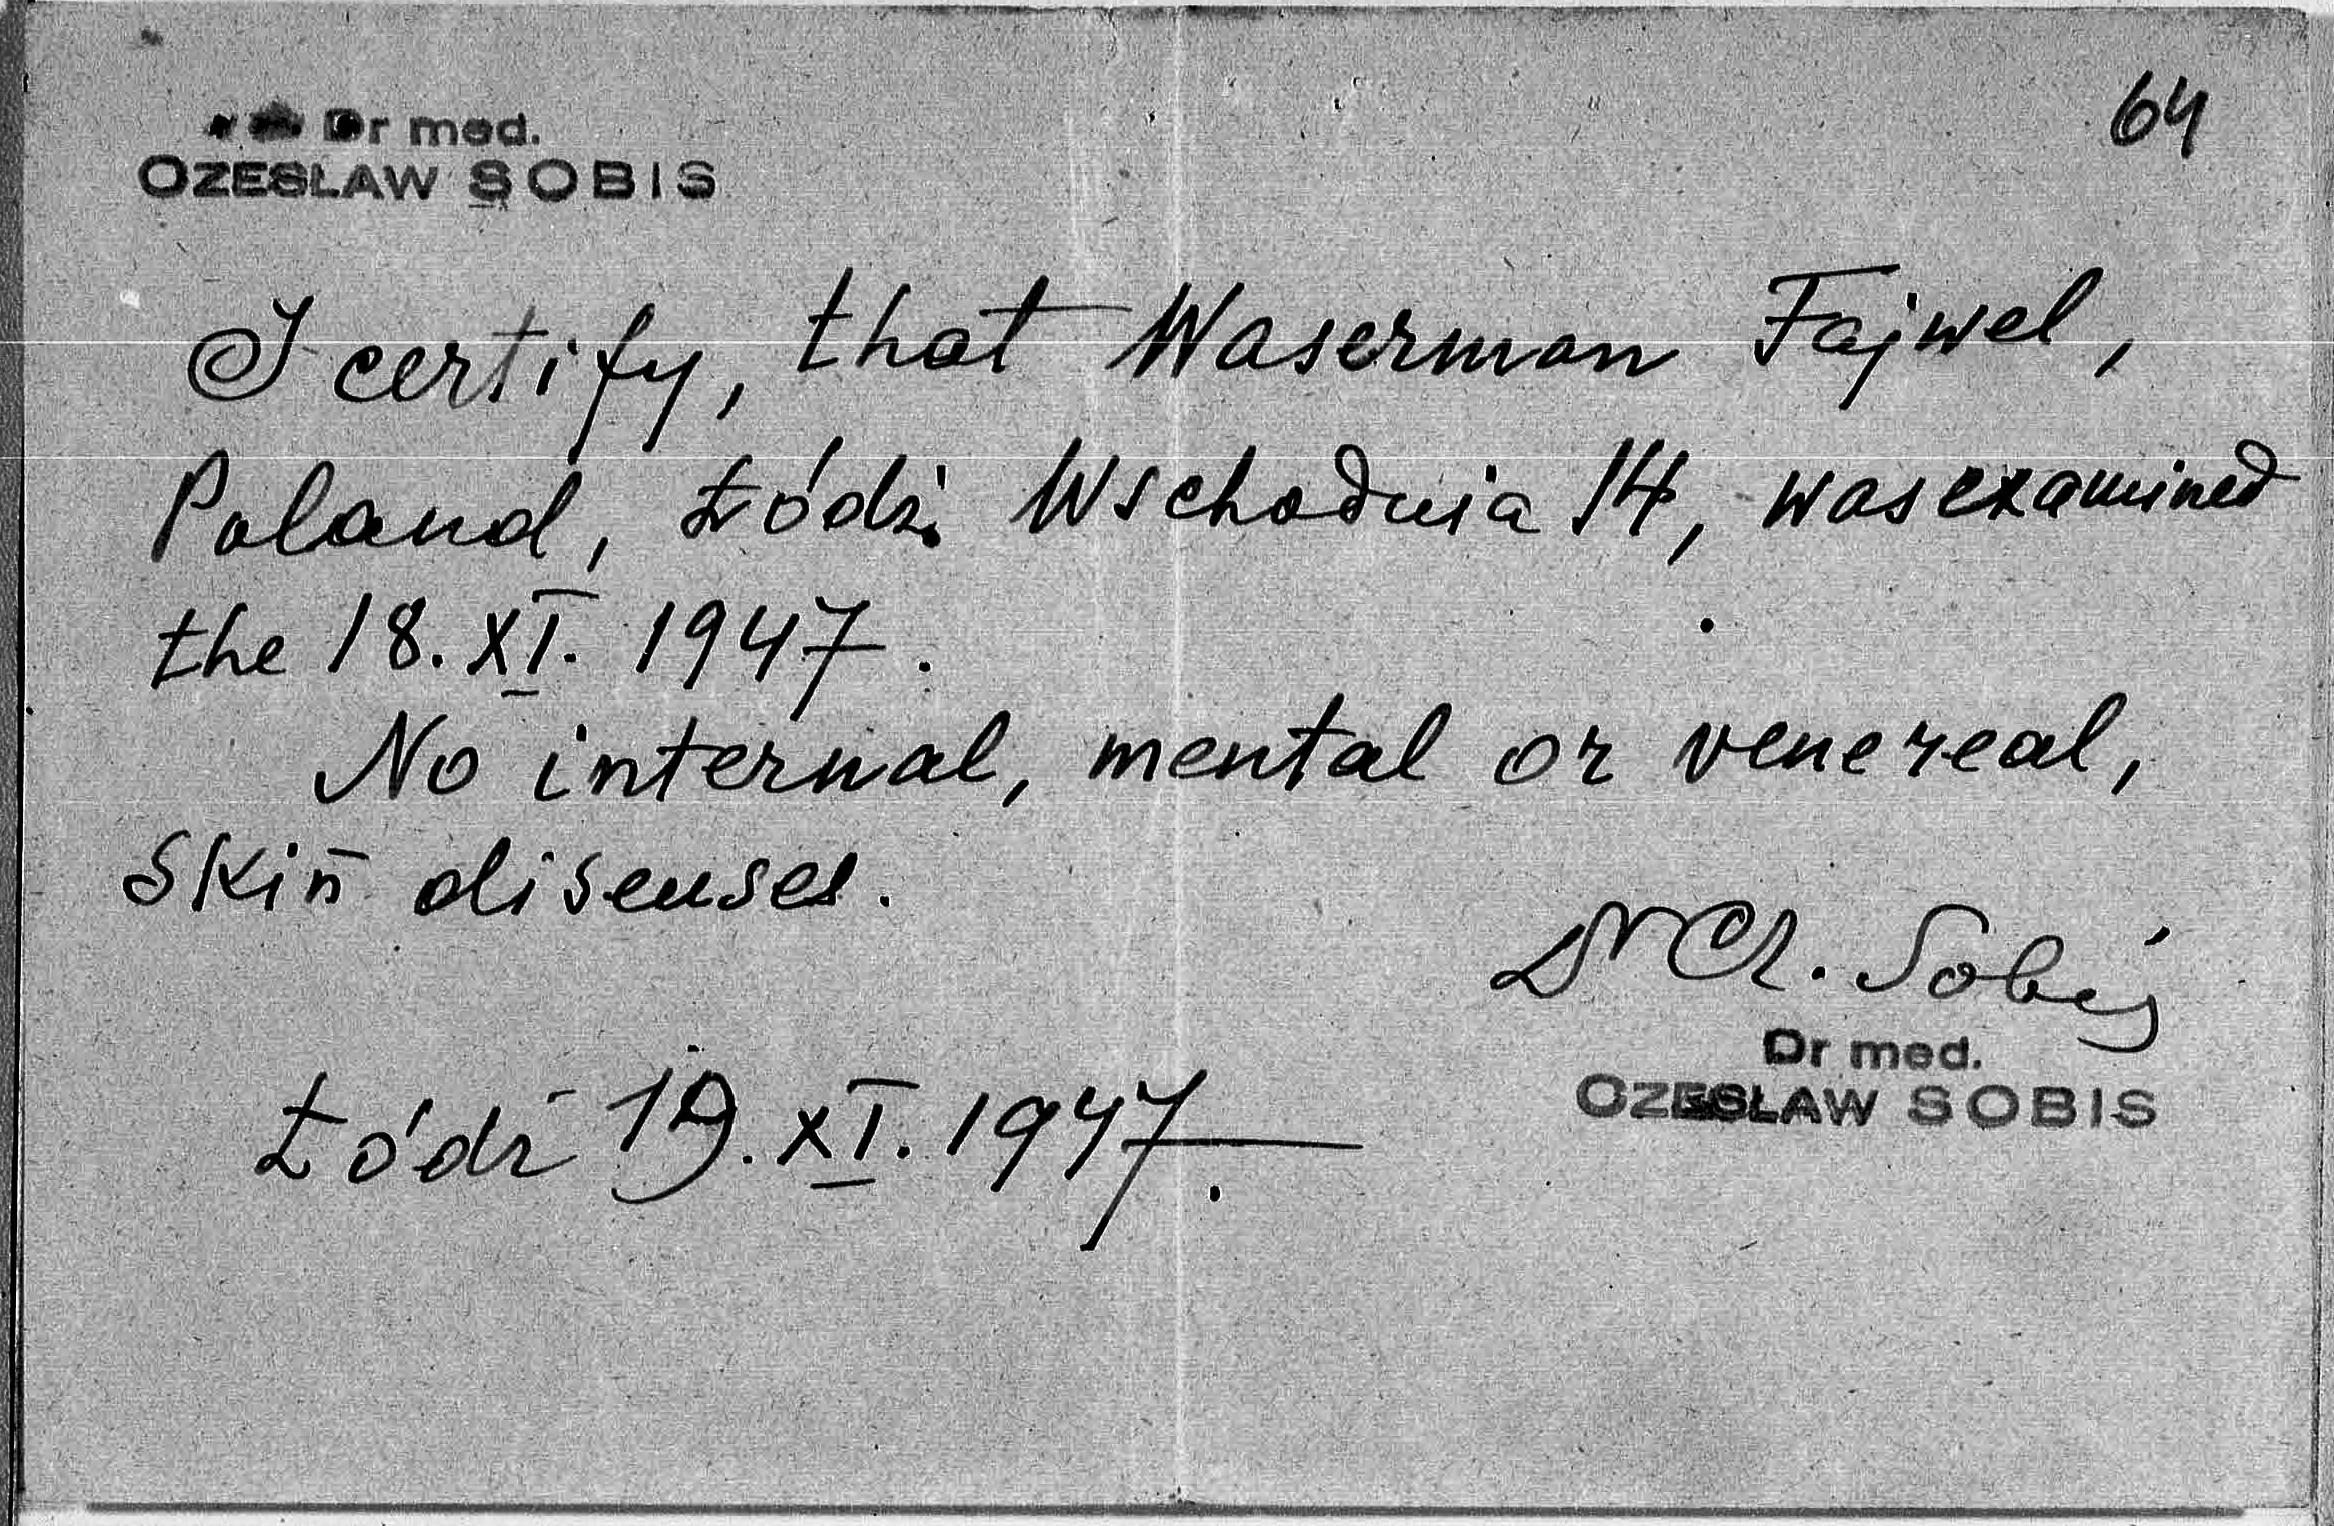 64
Dr med.
CZESŁAW SOBIS
I certify, that Waserman Fajwel,
Poland, Łódź, Wschodnia 14, was examined
the 18. XI. 1947.
No internal, mental or venereal,
skin diseases.
Dr Cz. Sobiś
Dr med.
CZESŁAW SOBIS
Łódź 19. XI. 1947.